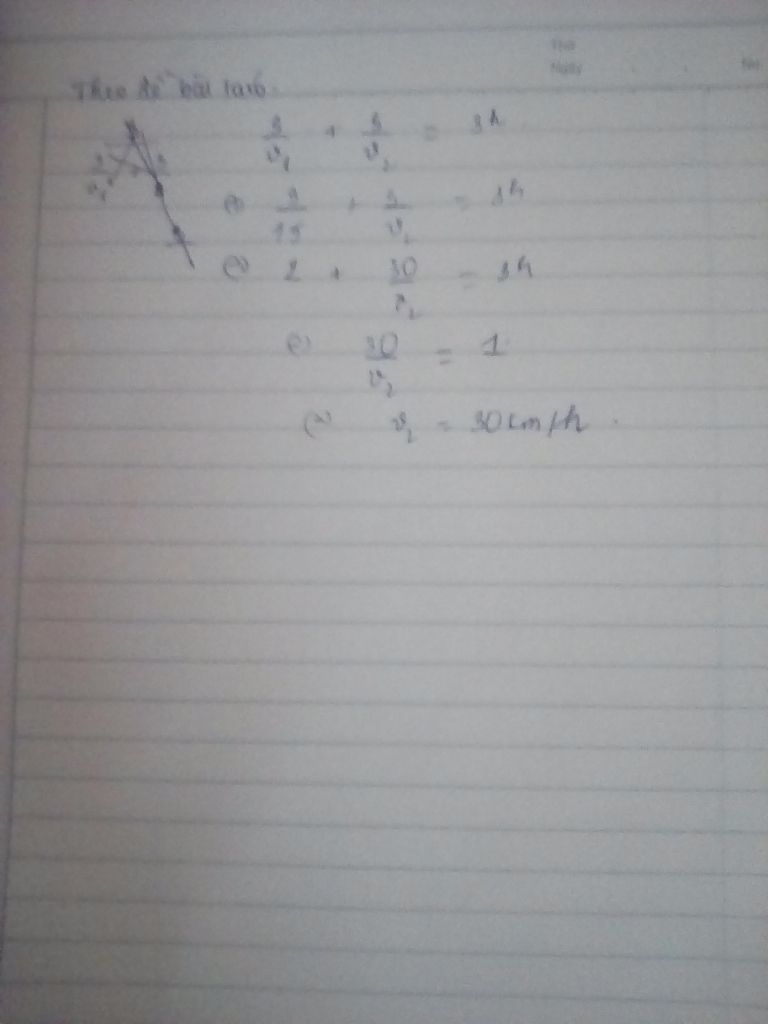 Thứ
Ngày
Theo đề bài ta có
s/v₁ + s/v₂ = 3h
s/15 + s/v₂ = 3h
2 + 30/v₂ = 3h
30/v₂ = 1
v₂ = 30 km/h.